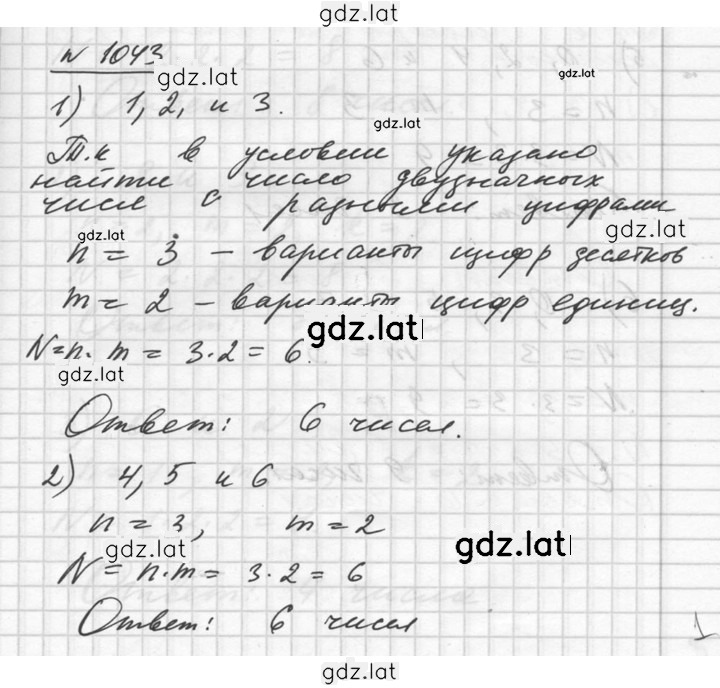 gdz.lat
N 1043
gdz.lat
gdz.lat
1) 1, 2, и 3.
gdz.lat
Т.к в условии указано
найти число двузначных
чисел с разными цифрами
gdz.lat
n = 3 – варианты цифр десятков
m = 2 – варианты цифр единиц.
gdz.lat
N = n · m = 3 · 2 = 6.
gdz.lat
Ответ: 6 чисел.
2) 4, 5 и 6
n = 3, m = 2
gdz.lat
gdz.lat
N = n · m = 3 · 2 = 6
Ответ: 6 чисел
1
gdz.lat